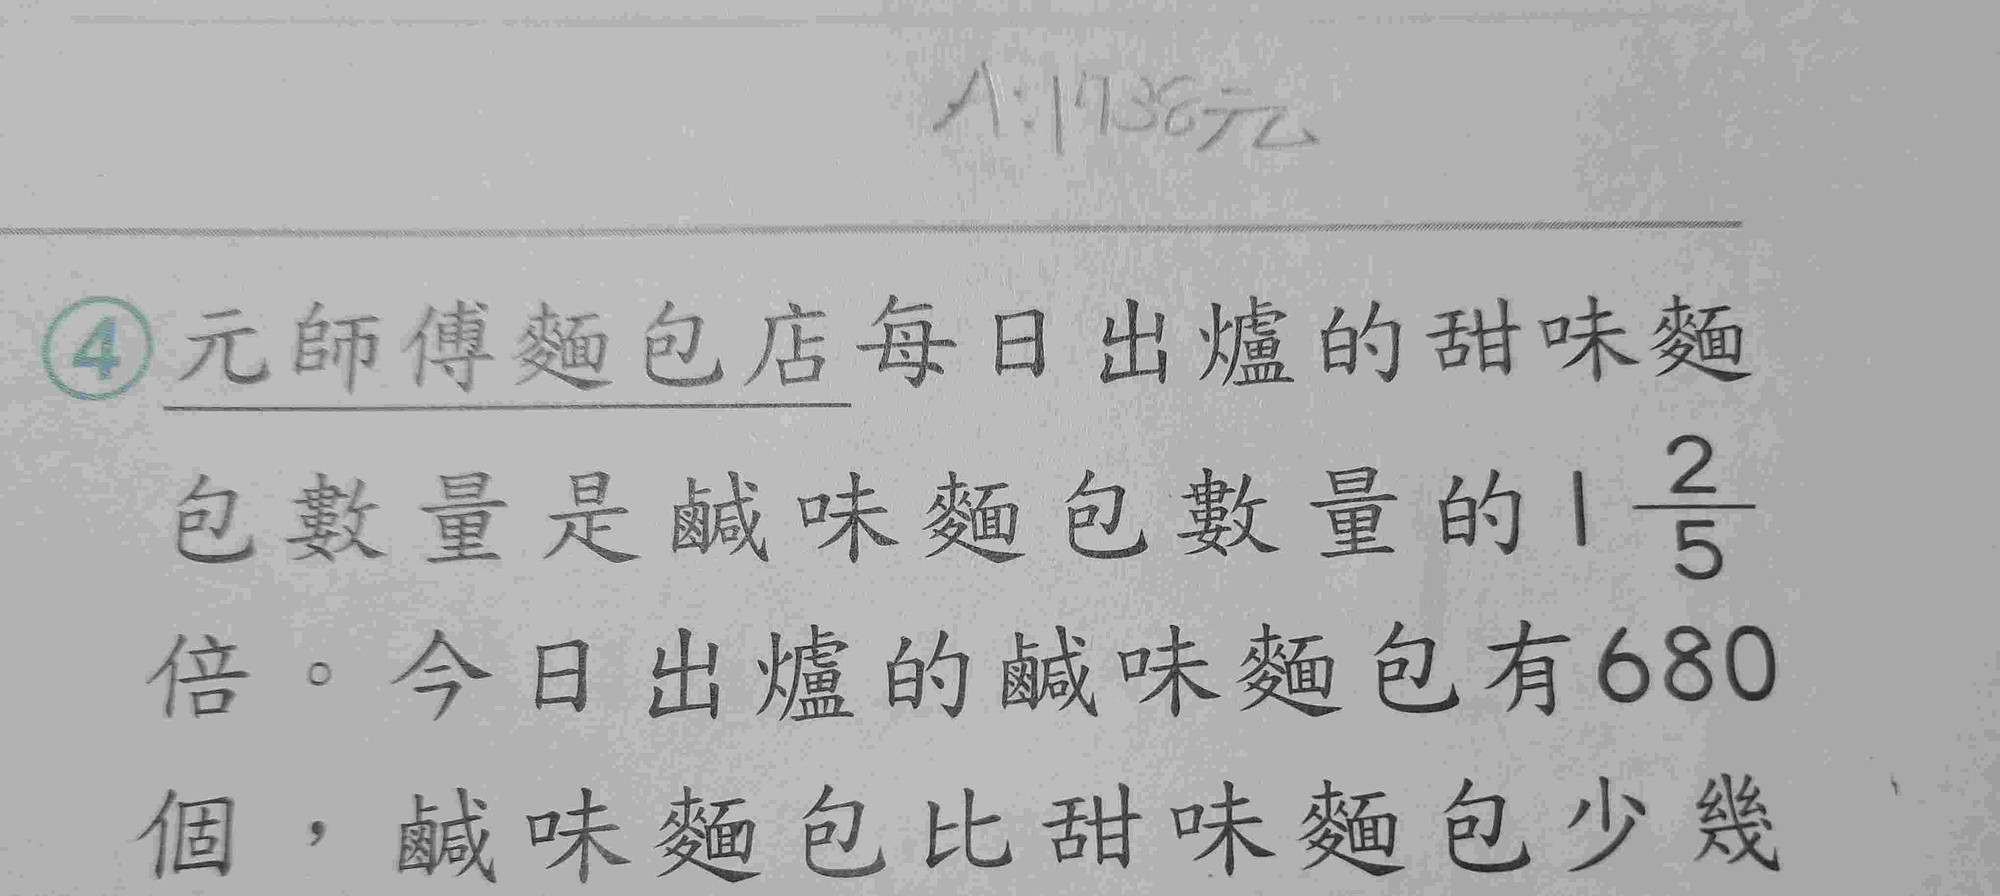 A:1736元
④元師傅麵包店每日出爐的甜味麵
包數量是鹹味麵包數量的1 2/5
倍。今日出爐的鹹味麵包有680
個，鹹味麵包比甜味麵包少幾